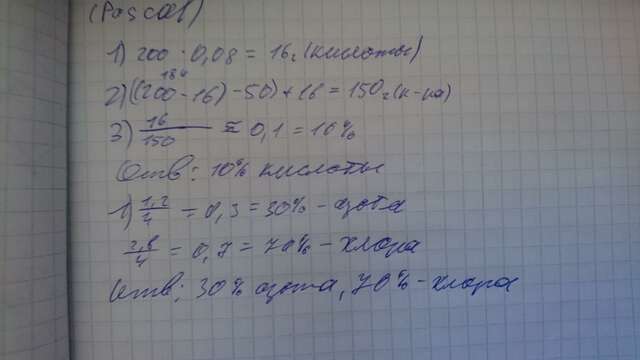 (Pascal)
1) 200 · 0,08 = 16 г (кислоты)
184
2) ((200-16) - 50) + 16 = 150 г (к-ка)
3) 16/150 ≈ 0,1 = 10%
Отв: 10% кислоты
1) 1,2/4 = 0,3 = 30% - азота
2,8/4 = 0,7 = 70% - хлора
Отв: 30% азота, 70% - хлора